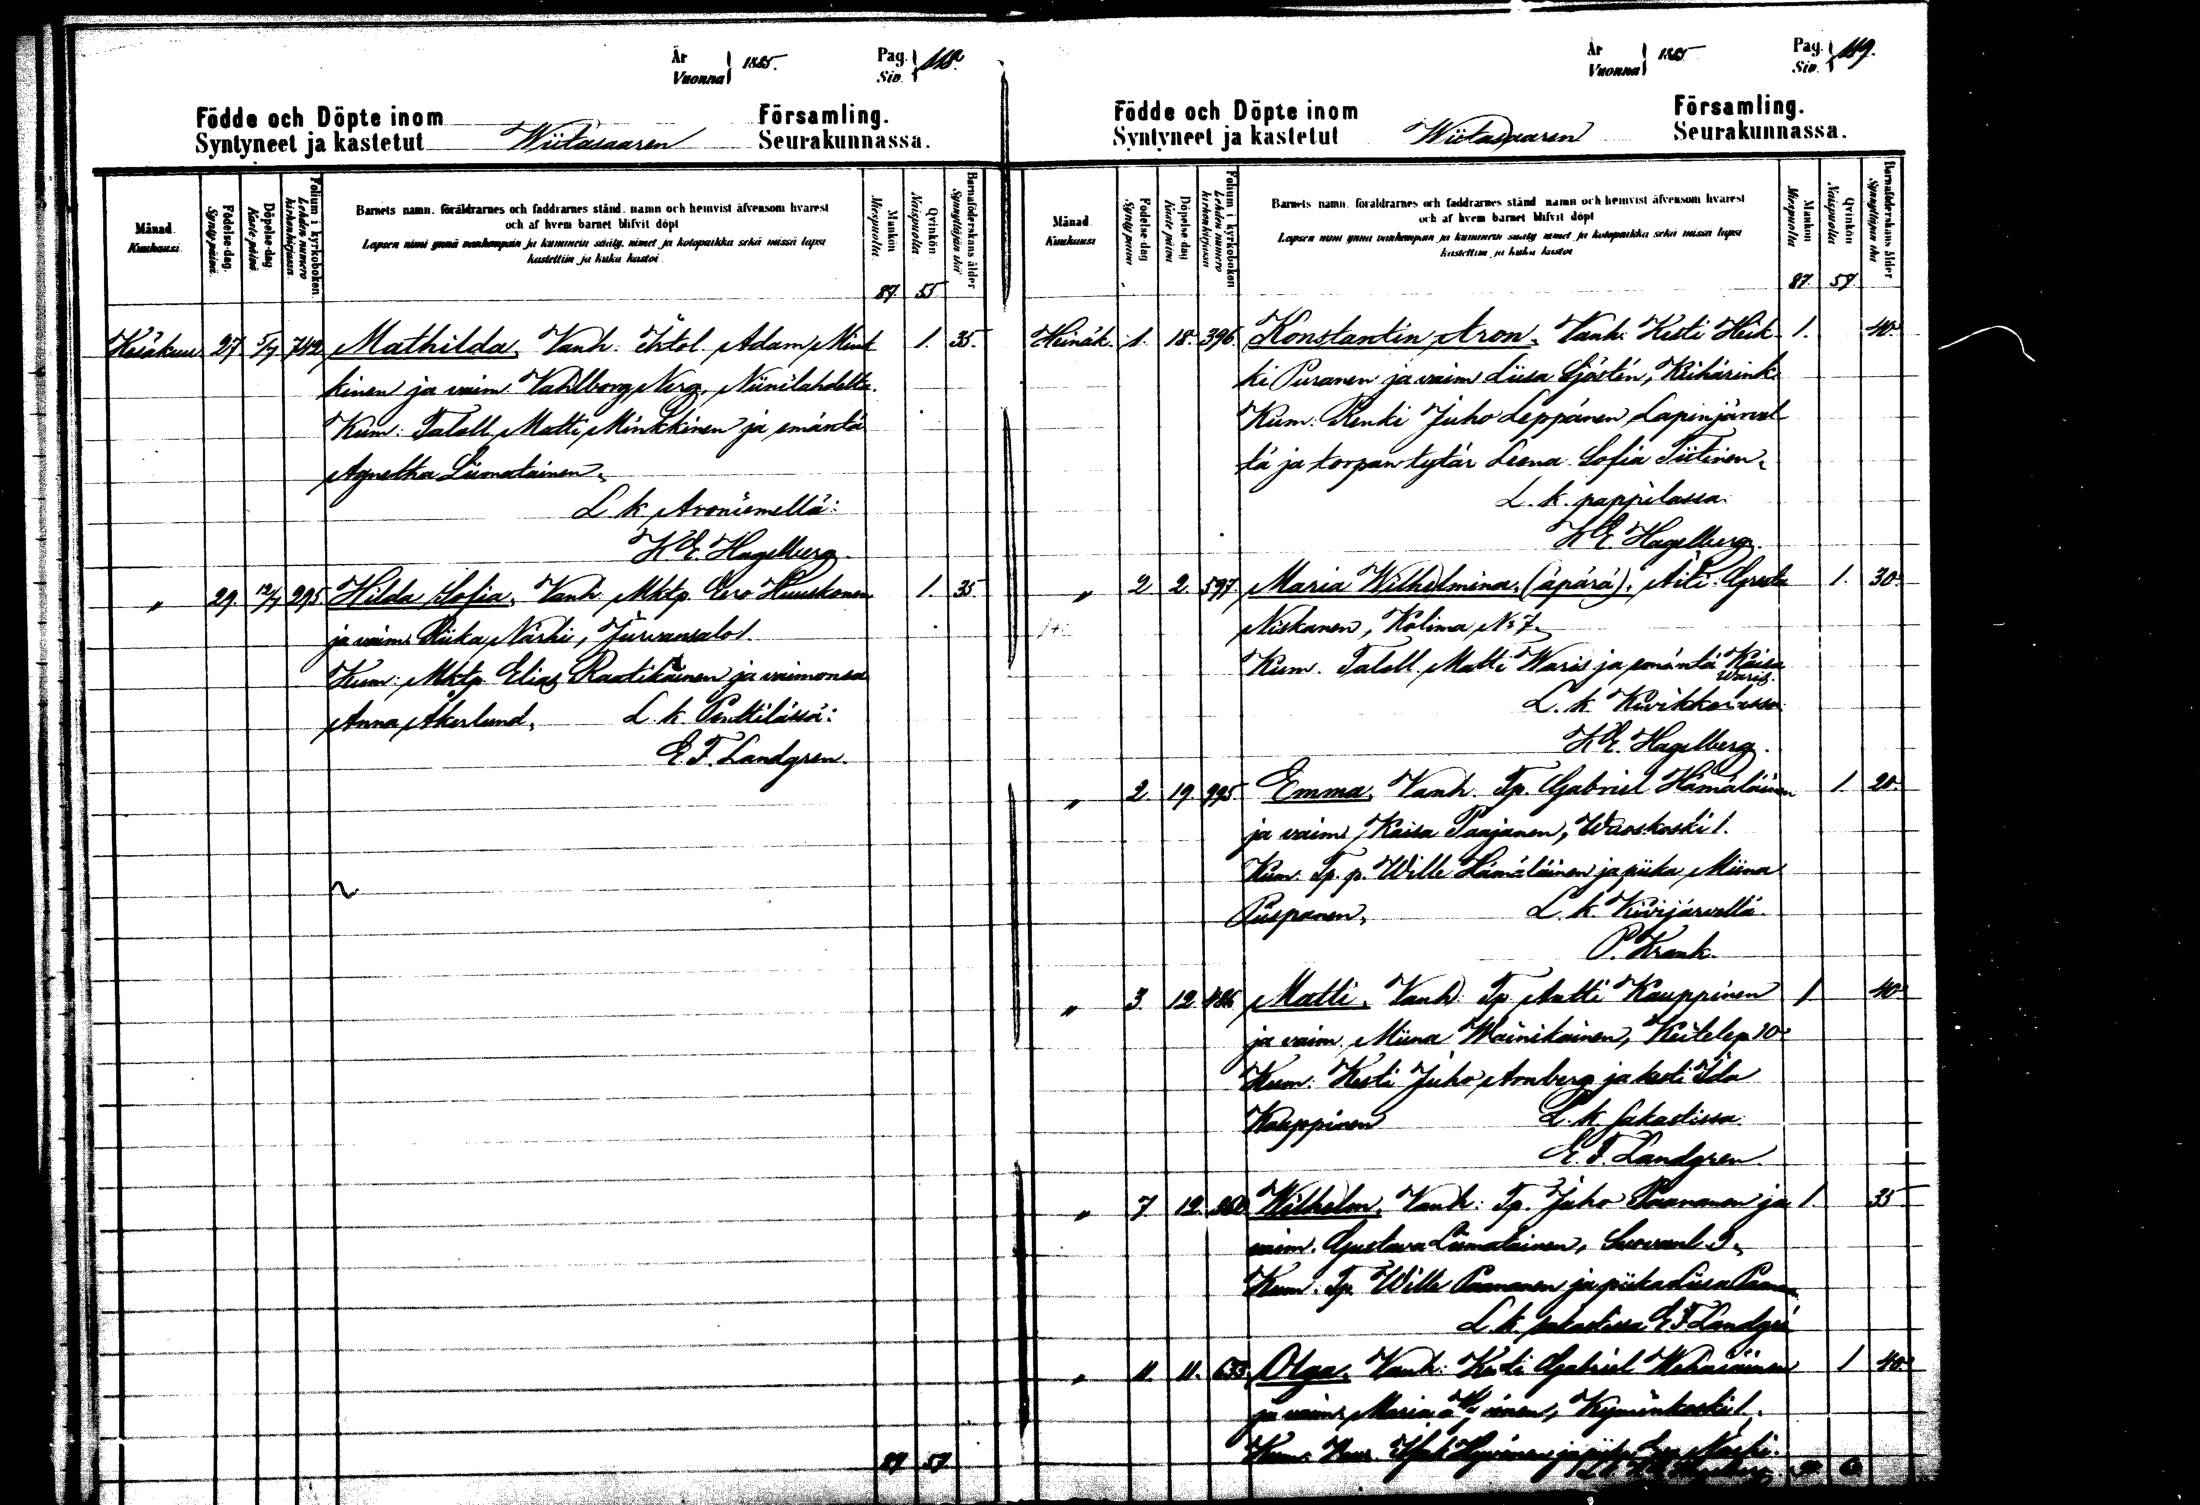 År Vuonna 1885. Pag. Siv. 118.
Födde och Döpte inom Församling.
Syntyneet ja kastetut Wiitasaaren Seurakunnassa.
Månad. Kuukausi. Födelse-dag. Synty päivä. Döpelse-dag Kaste päivä. Folium i kyrkoboken. Lehden numero kirkonkirjassa. Barnets namn. föräldrarnes och faddrarnes stånd. namn och hemvist äfvensom hvarest Mankön Miespuolta. Qvinkön Naispuolta. Barnaföderskans ålder Synnyttäjän ikä
och af hvem barnet blifvit döpt
Lapsen nimi ynnä vanhempain ja kummein sääty, nimet ja kotopaikka sekä missä lapsi
kastettiin ja kuka kastoi
87. 55
Kesäkuu 27 5/7 742 Mathilda, Vanh. Adam Mink 1. 35.
kinen ja vaim. Vahlborg Nerg, Niinilahdelta.
Kum: Taloll. Matti Minkkinen ja emäntä
Agnetha Liimatainen,
L. k. Aroniemellä:
K E. Hagelberg.
" 29. 12/7 295 Hilda Sofia, Vanh. Mktp. Eero Huuskonen 1. 35
ja vaim. Riika Närhi, Jurvansalo 1.
Kum: Mktp. Elias Raatikainen ja vaimonsa
Anna Åkerlund, L. k. Penttilässä:
E. F. Landgren.
87 57
År Vuonna 1885 Pag. Siv. 119.
Födde och Döpte inom Församling.
Syntyneet ja kastetut Wiitasaaren Seurakunnassa.
Månad Kuukausi Födelse-dag Synty päivä Döpelse-dag Kaste päivä Folium i kyrkoboken Lehden numero kirkonkirjassa Barnets namn. föräldrarnes och faddrarnes stånd namn och hemvist äfvensom hvarest Mankön Miespuolta Qvinkön Naispuolta Barnaföderskans ålder Synnyttäjän ikä
och af hvem barnet blifvit döpt
Lapsen nimi ynnä vanhempain ja kummein sääty nimet ja kotopaikka sekä missä lapsi
kastettiin ja kuka kastoi
87. 57
Heinäk. 1. 18. 396. Konstantin Aron, Vanh: Kesti Heik 1. 40.
ki Puranen ja vaim Liisa Sjöstén, Keihärink.
Kum: Renki Juho Leppänen, Lapinjärvel
tä ja torpan tytär Leena Sofia Tiitinen,
L. k. pappilassa:
K E. Hagelberg.
" 2 2. 597. Maria Wilhelmina, (äpärä), Äiti: Greeta 1. 30.
Niskanen, Kolima No 7.
Kum. Taloll. Matti Waris ja emäntä Kaisa
Waris.
L. k.
K E. Hagelberg.
" 2. 19. 995. Emma, Vanh. Tp. Gabriel Hämäläinen 1. 20.
ja vaim. Kaisa Paajanen, Wuoskoski 1.
Kum. Tp. p. Wille Hämäläinen ja piika Miina
Piispanen, L. k. Kivijärvellä.
P. Krank.
" 3. 12. 486 Matti, Vanh: Tp. Antti Kauppinen 1 40.
ja vaim. Miina Wainikainen, Keitelep. 10.
Kum: Kesti Juho Aronberg ja kesti Ida
Kauppinen L. k. sakastissa.
E. F. Landgren.
" 7. 12. Wilhelm, Vanh: Tp. Juho Paananen ja 1. 35
vaim. Gustava Liimatainen, Suovanl. 9,
Kum: Tp. Wille Paananen ja piika Liisa
L. k. sakastissa E F Landgré
" 11. 11. 633. Olga, Vanh: Kesti Gabriel 1 40.
ja vaim. Maria Kyminkoski 1.
Kum: